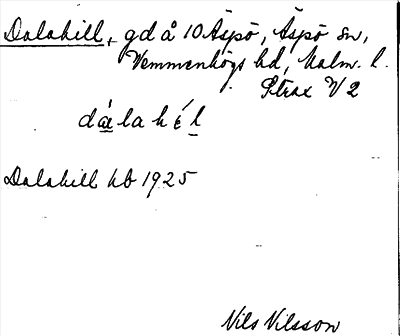 Dalahill, gd å 10 Äspö, Äspö sn,
Vemmenhögs hd, Malm. l.
Strax V 2
dálahél
Dalahill hb 1925
Nils Nilsson